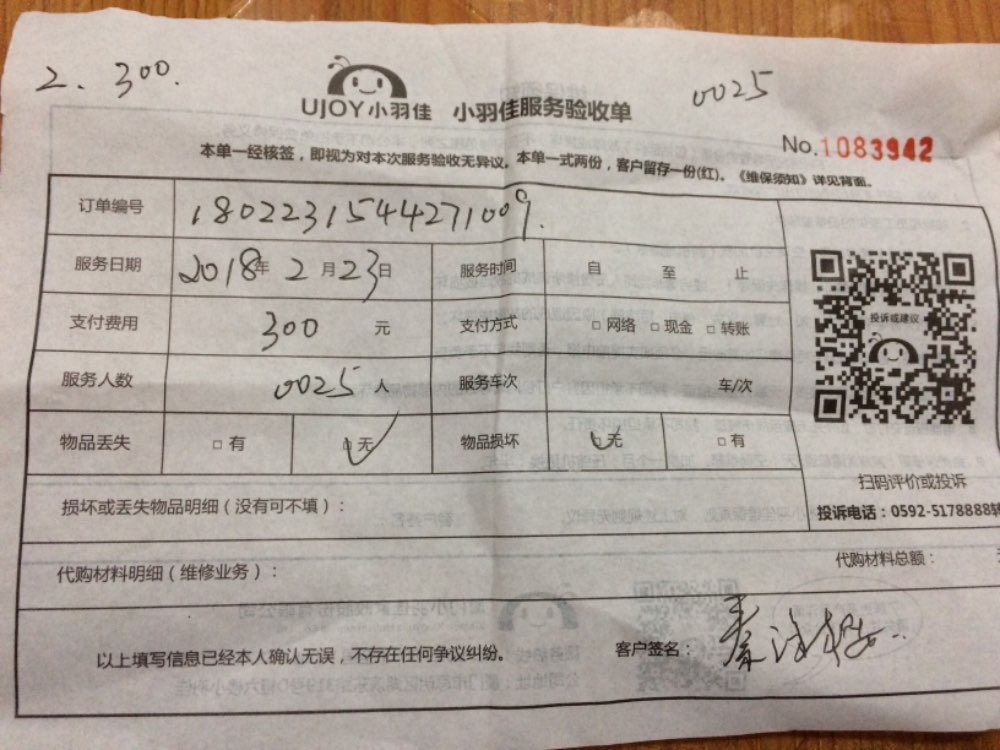 2. 300.
0025
UJOY小羽佳 小羽佳服务验收单
No.1083942
本单一经核签，即视为对本次服务验收无异议。本单一式两份，客户留存一份(红)。《维保须知》详见背面。
订单编号 1802231544271009.
服务日期 2018年2月23日 服务时间 自 至 止
支付费用 300 元 支付方式 □网络 □现金 □转账
服务人数 0025 人 服务车次 车/次
物品丢失 □有 □无 物品损坏 □无 □有
投诉或建议
扫码评价或投诉
投诉电话：0592-5178888转
损坏或丢失物品明细（没有可不填）：
代购材料明细（维修业务）： 代购材料总额：
以上填写信息已经本人确认无误，不存在任何争议纠纷。 客户签名：